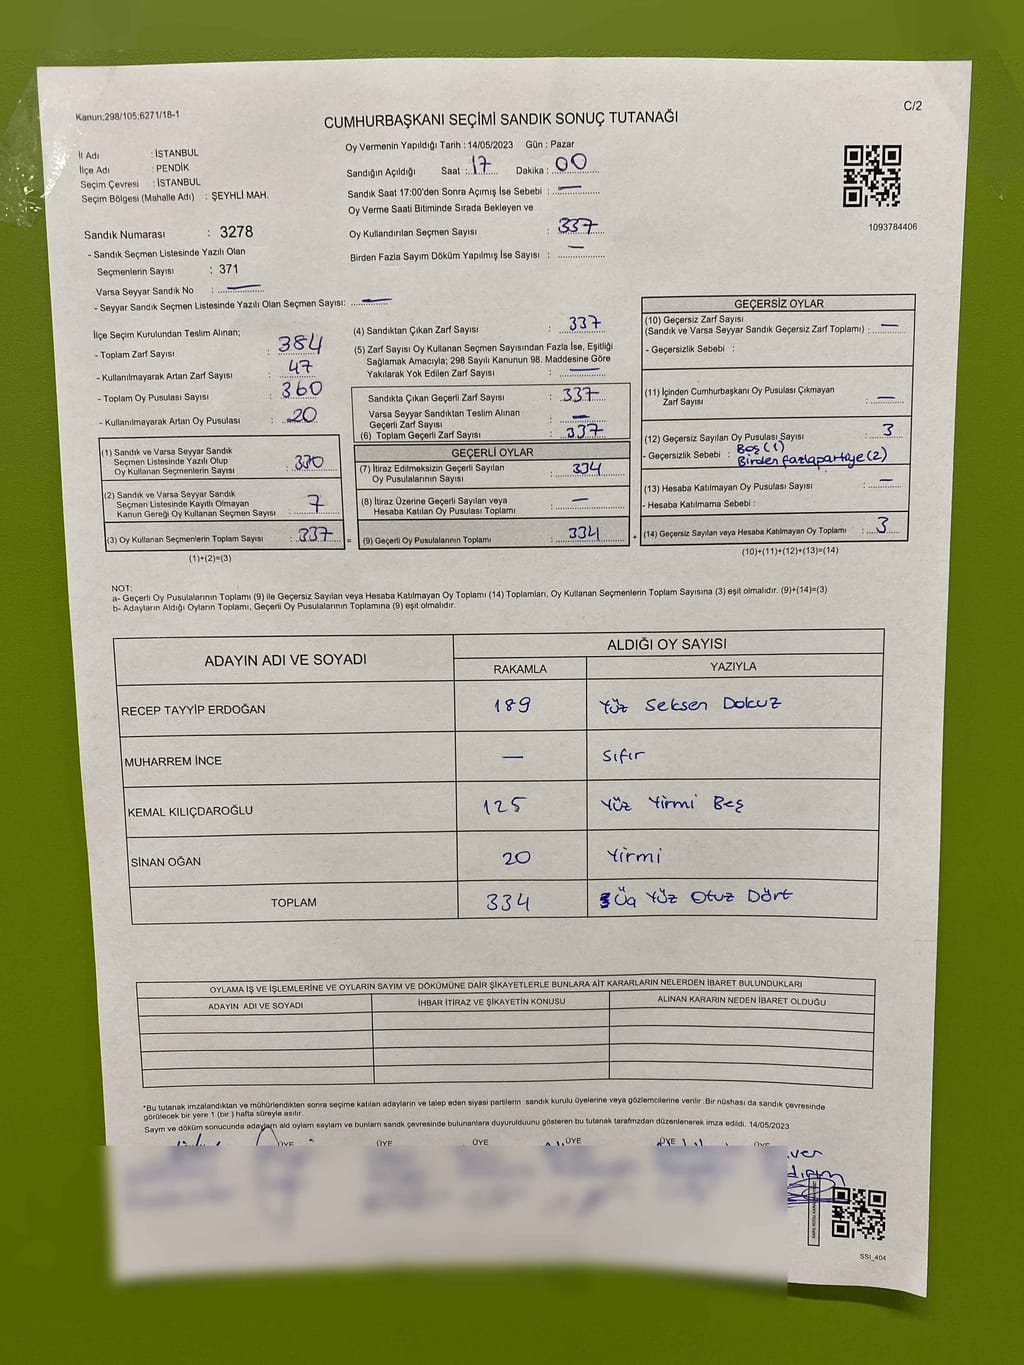 Kanun:298/105;6271/18-1
C/2
CUMHURBAŞKANI SEÇİMİ SANDIK SONUÇ TUTANAĞI
İl Adı : İSTANBUL
İlçe Adı : PENDİK
Seçim Çevresi : İSTANBUL
Seçim Bölgesi (Mahalle Adı) : ŞEYHLİ MAH.
Sandık Numarası : 3278
- Sandık Seçmen Listesinde Yazılı Olan
Seçmenlerin Sayısı : 371
Varsa Seyyar Sandık No : —
- Seyyar Sandık Seçmen Listesinde Yazılı Olan Seçmen Sayısı: —
Oy Vermenin Yapıldığı Tarih : 14/05/2023 Gün : Pazar
Sandığın Açıldığı Saat : 17 Dakika : 00
Sandık Saat 17:00'den Sonra Açımış İse Sebebi : —
Oy Verme Saati Bitiminde Sırada Bekleyen ve
Oy Kullandırılan Seçmen Sayısı : 337
Birden Fazla Sayım Döküm Yapılmış İse Sayısı : —
1093784406
İlçe Seçim Kurulundan Teslim Alınan;
- Toplam Zarf Sayısı : 384
- Kullanılmayarak Artan Zarf Sayısı : 47
- Toplam Oy Pusulası Sayısı : 360
- Kullanılmayarak Artan Oy Pusulası : 20
(1) Sandık ve Varsa Seyyar Sandık
Seçmen Listesinde Yazılı Olup
Oy Kullanan Seçmenlerin Sayısı : 330
(2) Sandık ve Varsa Seyyar Sandık
Seçmen Listesinde Kayıtlı Olmayan
Kanun Gereği Oy Kullanan Seçmen Sayısı : 7
(3) Oy Kullanan Seçmenlerin Toplam Sayısı : 337
(1)+(2)=(3)
(4) Sandıktan Çıkan Zarf Sayısı : 337
(5) Zarf Sayısı Oy Kullanan Seçmen Sayısından Fazla İse, Eşitliği
Sağlamak Amacıyla; 298 Sayılı Kanunun 98. Maddesine Göre
Yakılarak Yok Edilen Zarf Sayısı : —
Sandıkta Çıkan Geçerli Zarf Sayısı : 337
Varsa Seyyar Sandıktan Teslim Alınan
Geçerli Zarf Sayısı : —
(6) Toplam Geçerli Zarf Sayısı : 337
GEÇERLİ OYLAR
(7) İtiraz Edilmeksizin Geçerli Sayılan
Oy Pusulalarının Sayısı : 334
(8) İtiraz Üzerine Geçerli Sayılan veya
Hesaba Katılan Oy Pusulası Toplamı : —
= (9) Geçerli Oy Pusulalarının Toplamı : 334
GEÇERSİZ OYLAR
(10) Geçersiz Zarf Sayısı
(Sandık ve Varsa Seyyar Sandık Geçersiz Zarf Toplamı) : —
- Geçersizlik Sebebi :
(11) İçinden Cumhurbaşkanı Oy Pusulası Çıkmayan
Zarf Sayısı : —
(12) Geçersiz Sayılan Oy Pusulası Sayısı : 3
- Geçersizlik Sebebi : Boş (1)
Birden fazla partiye (2)
(13) Hesaba Katılmayan Oy Pusulası Sayısı : —
- Hesaba Katılmama Sebebi :
+ (14) Geçersiz Sayılan veya Hesaba Katılmayan Oy Toplamı : 3
(10)+(11)+(12)+(13)=(14)
NOT:
a- Geçerli Oy Pusulalarının Toplamı (9) ile Geçersiz Sayılan veya Hesaba Katılmayan Oy Toplamı (14) Toplamları, Oy Kullanan Seçmenlerin Toplam Sayısına (3) eşit olmalıdır. (9)+(14)=(3)
b- Adayların Aldığı Oyların Toplamı, Geçerli Oy Pusulalarının Toplamına (9) eşit olmalıdır.
ADAYIN ADI VE SOYADI
ALDIĞI OY SAYISI
RAKAMLA YAZIYLA
RECEP TAYYİP ERDOĞAN 189 Yüz Seksen Dokuz
MUHARREM İNCE — Sıfır
KEMAL KILIÇDAROĞLU 125 Yüz Yirmi Beş
SİNAN OĞAN 20 Yirmi
TOPLAM 334 Üç Yüz Otuz Dört
OYLAMA İŞ VE İŞLEMLERİNE VE OYLARIN SAYIM VE DÖKÜMÜNE DAİR ŞİKAYETLERLE BUNLARA AİT KARARLARIN NELERDEN İBARET BULUNDUKLARI
ADAYIN ADI VE SOYADI İHBAR İTİRAZ VE ŞİKAYETİN KONUSU ALINAN KARARIN NEDEN İBARET OLDUĞU
*Bu tutanak imzalandıktan ve mühürlendikten sonra seçime katılan adayların ve talep eden siyasi partilerin sandık kurulu üyelerine veya gözlemcilerine verilir. Bir nüshası da sandık çevresinde
görülecek bir yere 1 (bir) hafta süreyle asılır.
Sayım ve döküm sonucunda adayların aldığı oyların sayısını ve bunların sandık çevresinde bulunanlara duyurulduğunu gösteren bu tutanak tarafımızdan düzenlenerek imza edildi. 14/05/2023
ÜYE ÜYE ÜYE ÜYE ÜYE ÜYE
SSI_404